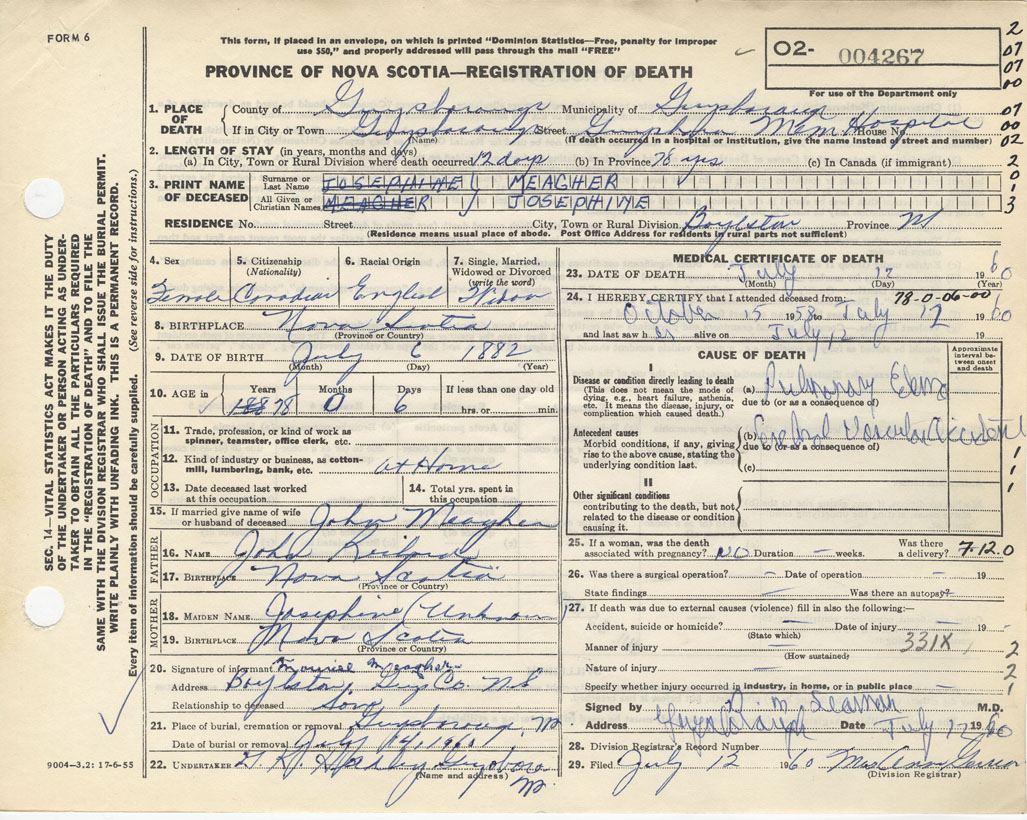 FORM 6
This form, if placed in an envelope, on which is printed "Dominion Statistics—Free, penalty for improper
use $50," and properly addressed will pass through the mail "FREE"
PROVINCE OF NOVA SCOTIA—REGISTRATION OF DEATH
O2- 004267
For use of the Department only
2
07
07
00
07
00
02
2
0
1
3
1. PLACE OF DEATH
County of Guysborough Municipality of Guysborough
If in City or Town Guysborough Street Mem Hospital House No.
(Name) (If death occurred in a hospital or institution, give the name instead of street and number)
2. LENGTH OF STAY (in years, months and days)
(a) In City, Town or Rural Division where death occurred 12 days (b) In Province 78 yrs (c) In Canada (if immigrant)
3. PRINT NAME OF DECEASED
Surname or Last Name JOSEPHINE MEAGHER
All Given or Christian Names MEAGHER JOSEPHINE
RESIDENCE No. Street City, Town or Rural Division Boylston Province NS
(Residence means usual place of abode. Post Office Address for residents in rural parts not sufficient)
4. Sex Female
5. Citizenship (Nationality) Canadian
6. Racial Origin English
7. Single, Married, Widowed or Divorced (write the word) Widow
8. BIRTHPLACE Nova Scotia
(Province or Country)
9. DATE OF BIRTH July 6 1882
(Month) (Day) (Year)
10. AGE in Years 78 Months 0 Days 6 If less than one day old
hrs. or min.
OCCUPATION
11. Trade, profession, or kind of work as
spinner, teamster, office clerk, etc.
12. Kind of industry or business, as cotton-
mill, lumbering, bank, etc. at Home
13. Date deceased last worked
at this occupation
14. Total yrs. spent in
this occupation
15. If married give name of wife
or husband of deceased John Meagher
FATHER
16. NAME John
17. BIRTHPLACE Nova Scotia
(Province or Country)
MOTHER
18. MAIDEN NAME Josephine (Unknown)
19. BIRTHPLACE Nova Scotia
(Province or Country)
20. Signature of informant Meagher
Address Boylston, Guy Co. NS
Relationship to deceased Son
21. Place of burial, cremation or removal Guysborough, NS
Date of burial or removal July 14, 1960
22. UNDERTAKER Guysboro
(Name and address) NS
MEDICAL CERTIFICATE OF DEATH
23. DATE OF DEATH July 12 1960
(Month) (Day) (Year)
78-0-06-00
24. I HEREBY CERTIFY that I attended deceased from:
October 15 1958 to July 12 1960
and last saw her alive on July 12
CAUSE OF DEATH
Approximate interval between onset and death
I
Disease or condition directly leading to death
(This does not mean the mode of
dying, e.g., heart failure, asthenia,
etc. It means the disease, injury, or
complication which caused death.)
(a) Pulmonary Edema
due to (or as a consequence of)
Antecedent causes
Morbid conditions, if any, giving
rise to the above cause, stating the
underlying condition last.
(b) Cerebral Vascular Accident
due to (or as a consequence of)
(c)
1
1
1
II
Other significant conditions
contributing to the death, but not
related to the disease or condition
causing it.
25. If a woman, was the death
associated with pregnancy? NO Duration — weeks. Was there
a delivery? 7-12.0
26. Was there a surgical operation? — Date of operation — 19
State findings — Was there an autopsy?
27. If death was due to external causes (violence) fill in also the following:—
Accident, suicide or homicide? — Date of injury — 19
(State which)
Manner of injury — 331X
(How sustained)
Nature of injury —
Specify whether injury occurred in industry, in home, or in public place —
2
2
1
Signed by M.D.
Address Guysborough Date July 12 1960
28. Division Registrar's Record Number
29. Filed July 12 1960 Mrs Ann
(Division Registrar)
SEC. 14—VITAL STATISTICS ACT MAKES IT THE DUTY
OF THE UNDERTAKER OR PERSON ACTING AS UNDER-
TAKER TO OBTAIN ALL THE PARTICULARS REQUIRED
IN THE "REGISTRATION OF DEATH" AND TO FILE THE
SAME WITH THE DIVISION REGISTRAR WHO SHALL ISSUE THE BURIAL PERMIT.
WRITE PLAINLY WITH UNFADING INK. THIS IS A PERMANENT RECORD.
Every item of information should be carefully supplied. (See reverse side for instructions.)
9004—3.2: 17-6-55